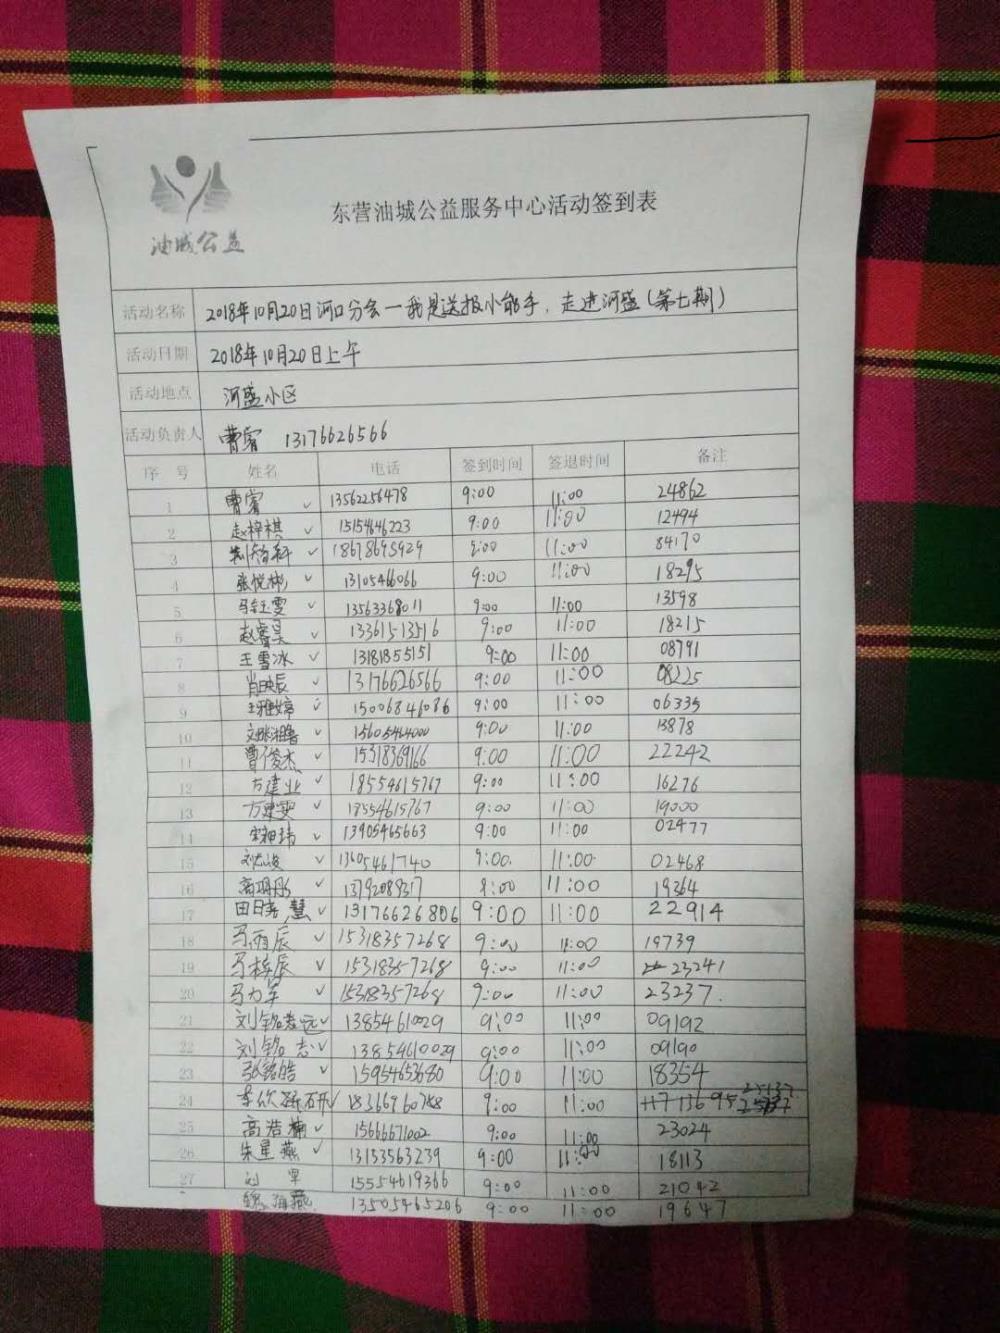 油城公益
东营油城公益服务中心活动签到表
活动名称 2018年10月20日河口分会一我是送报小能手，走进河盛（第七期）
活动日期 2018年10月20日上午
活动地点 河盛小区
活动负责人 曹睿 13176626566
序号 姓名 电话 签到时间 签退时间 备注
1 曹睿 ✓ 13562256478 9:00 11:00 24862
2 赵梓棋 ✓ 15154646223 9:00 11:00 12494
3 ✓ 18678695929 9:00 11:00 84170
4 张悦彬 ✓ 13105466066 9:00 11:00 18295
5 马钰雯 ✓ 13563368011 9:00 11:00 13598
6 赵睿昊 ✓ 13361513516 9:00 11:00 18215
7 王雪冰 ✓ 13181855151 9:00 11:00 08791
8 肖映辰 ✓ 13176626566 9:00 11:00 08225
9 王雅婷 ✓ 15006846086 9:00 11:00 06335
10 15605464000 9:00 11:00 13878
11 曹俊杰 ✓ 15318369166 9:00 11:00 22242
12 方建业 ✓ 18554615767 9:00 11:00 16276
13 方建雯 ✓ 18554615767 9:00 11:00 19000
14 ✓ 13905465663 9:00 11:00 02477
15 ✓ 13605461740 9:00 11:00 02468
16 ✓ 13792089317 9:00 11:00 19364
17 田晓慧 ✓ 13176626806 9:00 11:00 22914
18 马雨辰 ✓ 15318357268 9:00 11:00 19739
19 马梓辰 ✓ 15318357268 9:00 11:00 23241
20 马力军 ✓ 15318357268 9:00 11:00 23237
21 刘铭志远 ✓ 13854610029 9:00 11:00 09192
22 刘铭志 ✓ 13854610029 9:00 11:00 09190
23 张铭皓 ✓ 15954653680 9:00 11:00 18354
24 ✓ 18366960788 9:00 11:00 25137
25 高浩楠 ✓ 15666671002 9:00 11:00 23024
26 朱星燕 ✓ 13153563239 9:00 11:00 18113
27 15554619366 9:00 11:00 21042
魏海燕 13505465206 9:00 11:00 19647